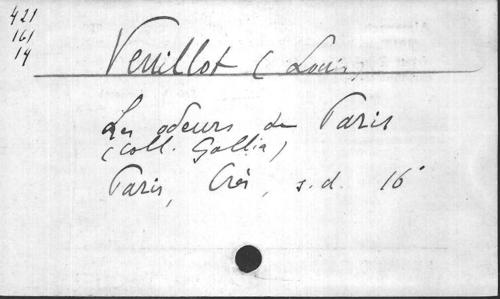 421
161
14
Veuillot (Louis)
Les odeurs de Paris
(Coll. Gallia)
Paris, Crès, s.d. 16°